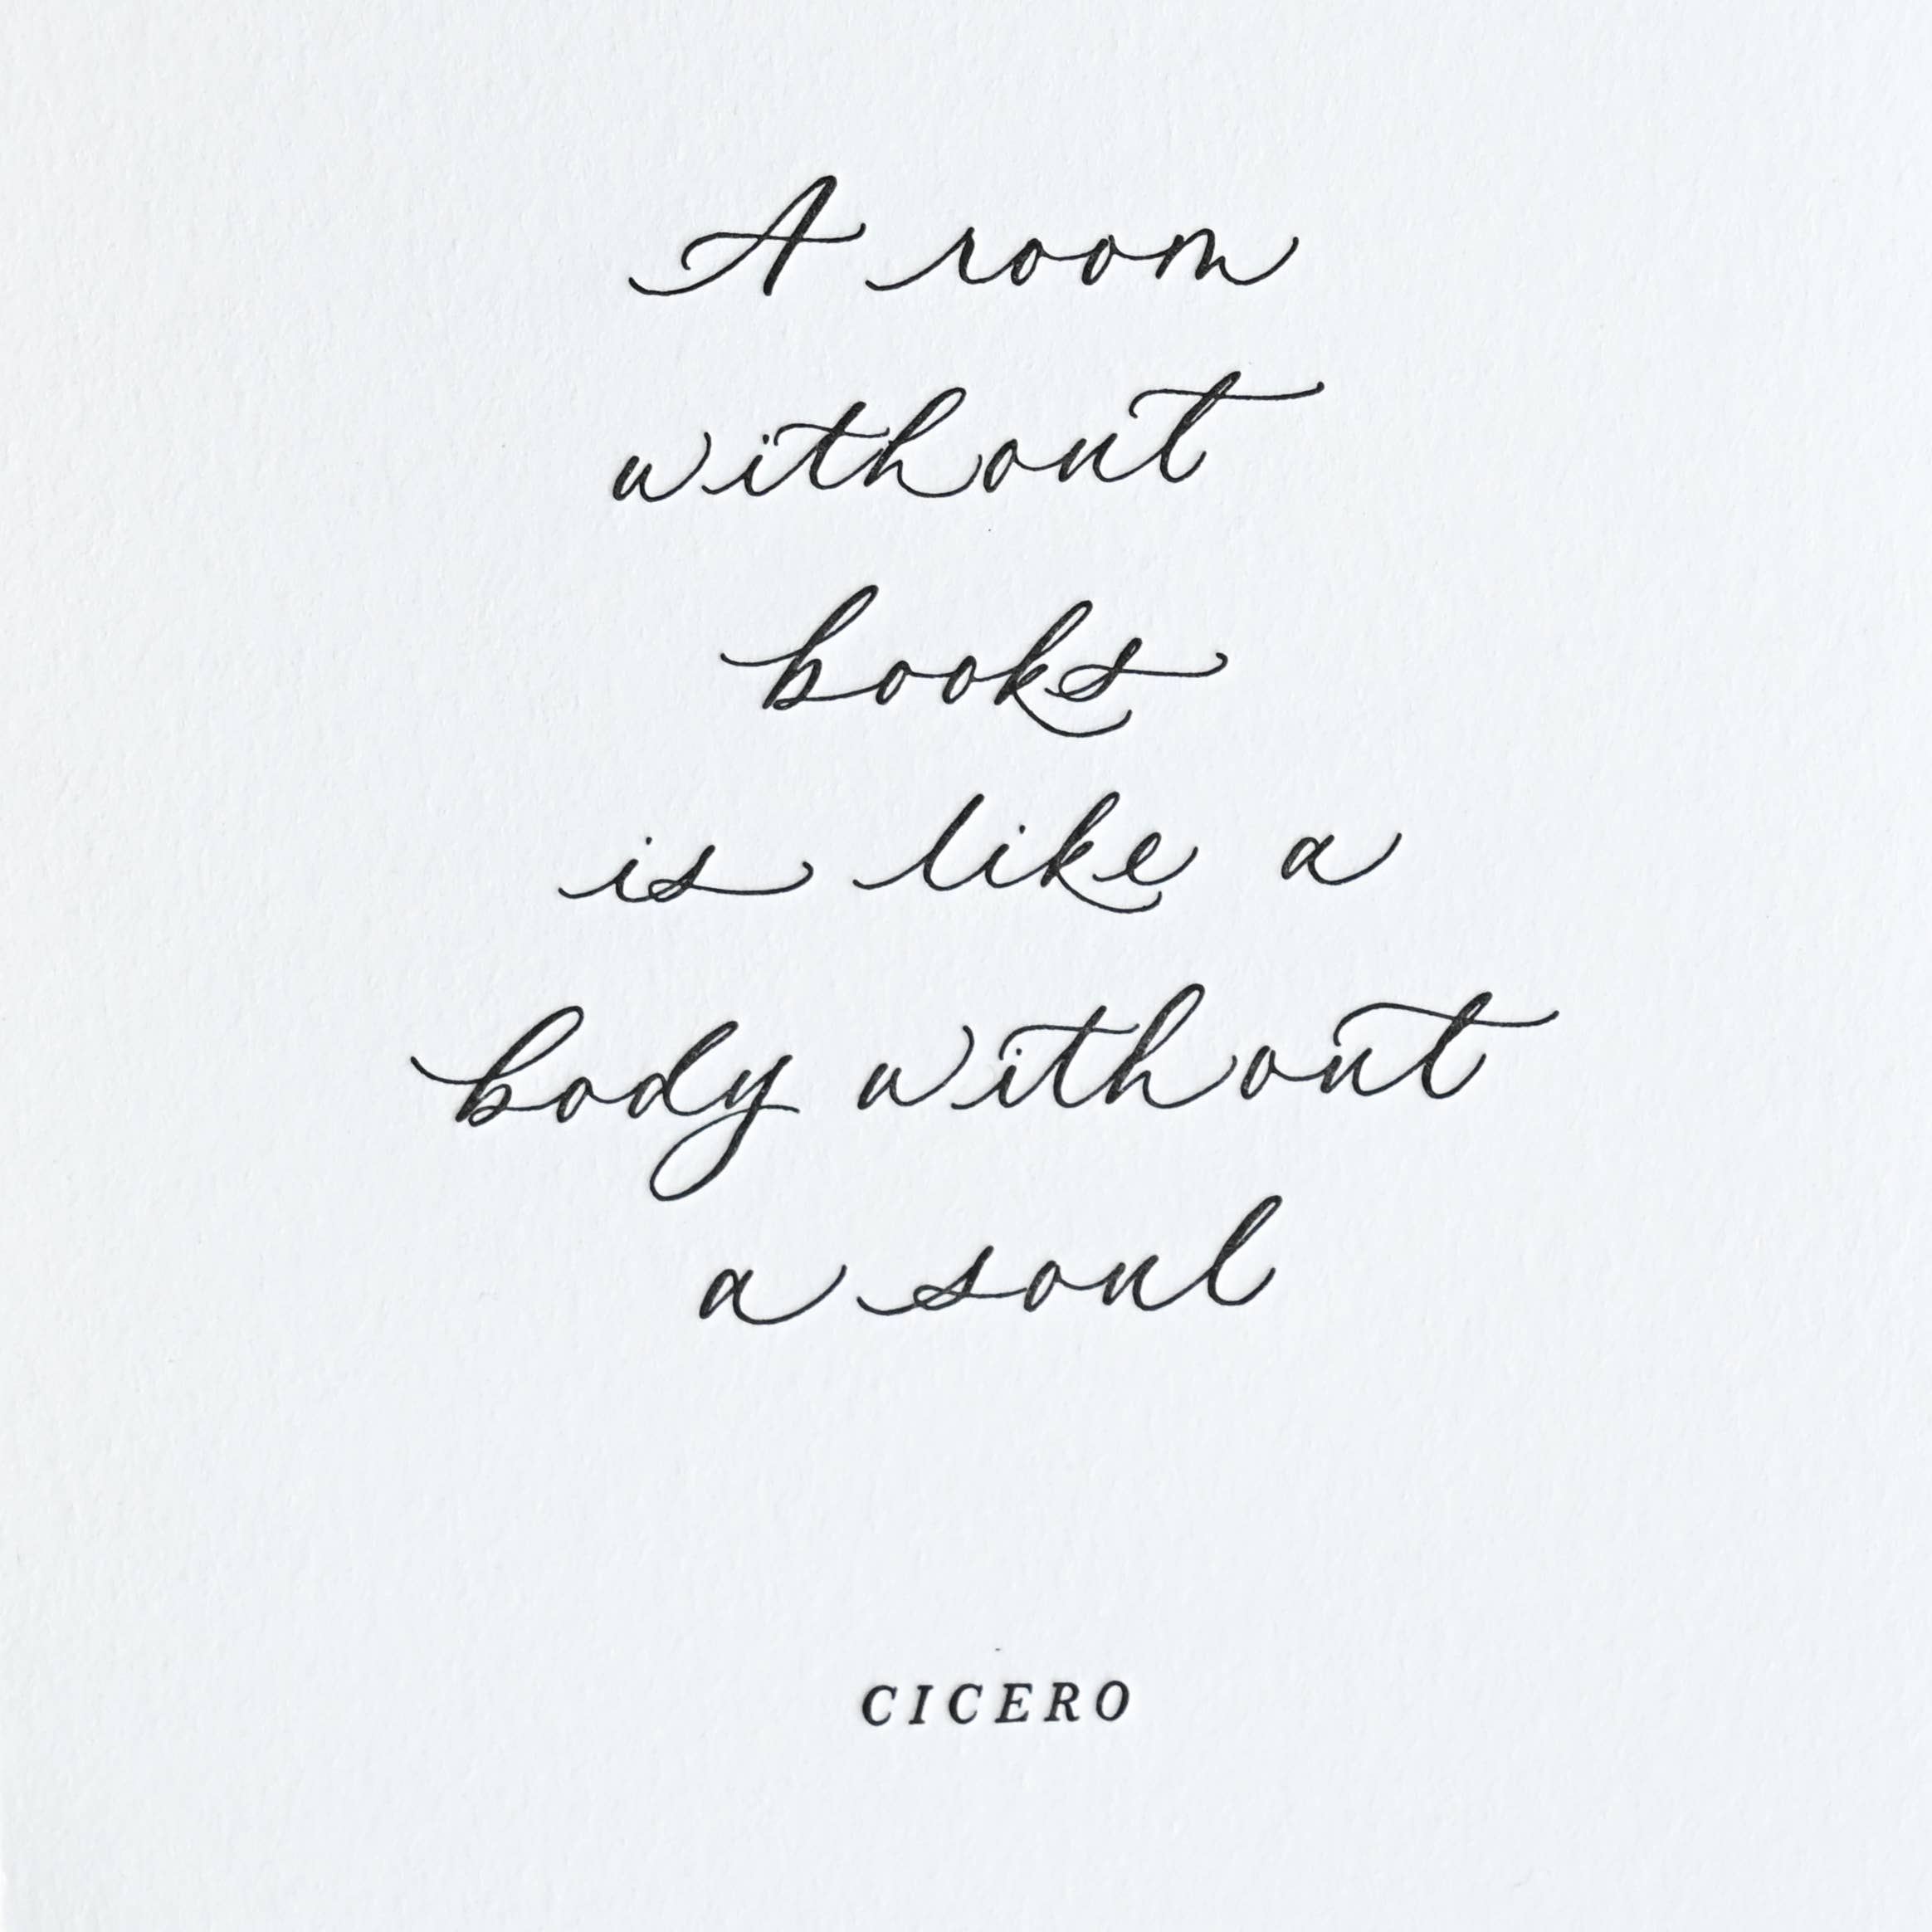 A room
without
books
is like a
body without
a soul
CICERO